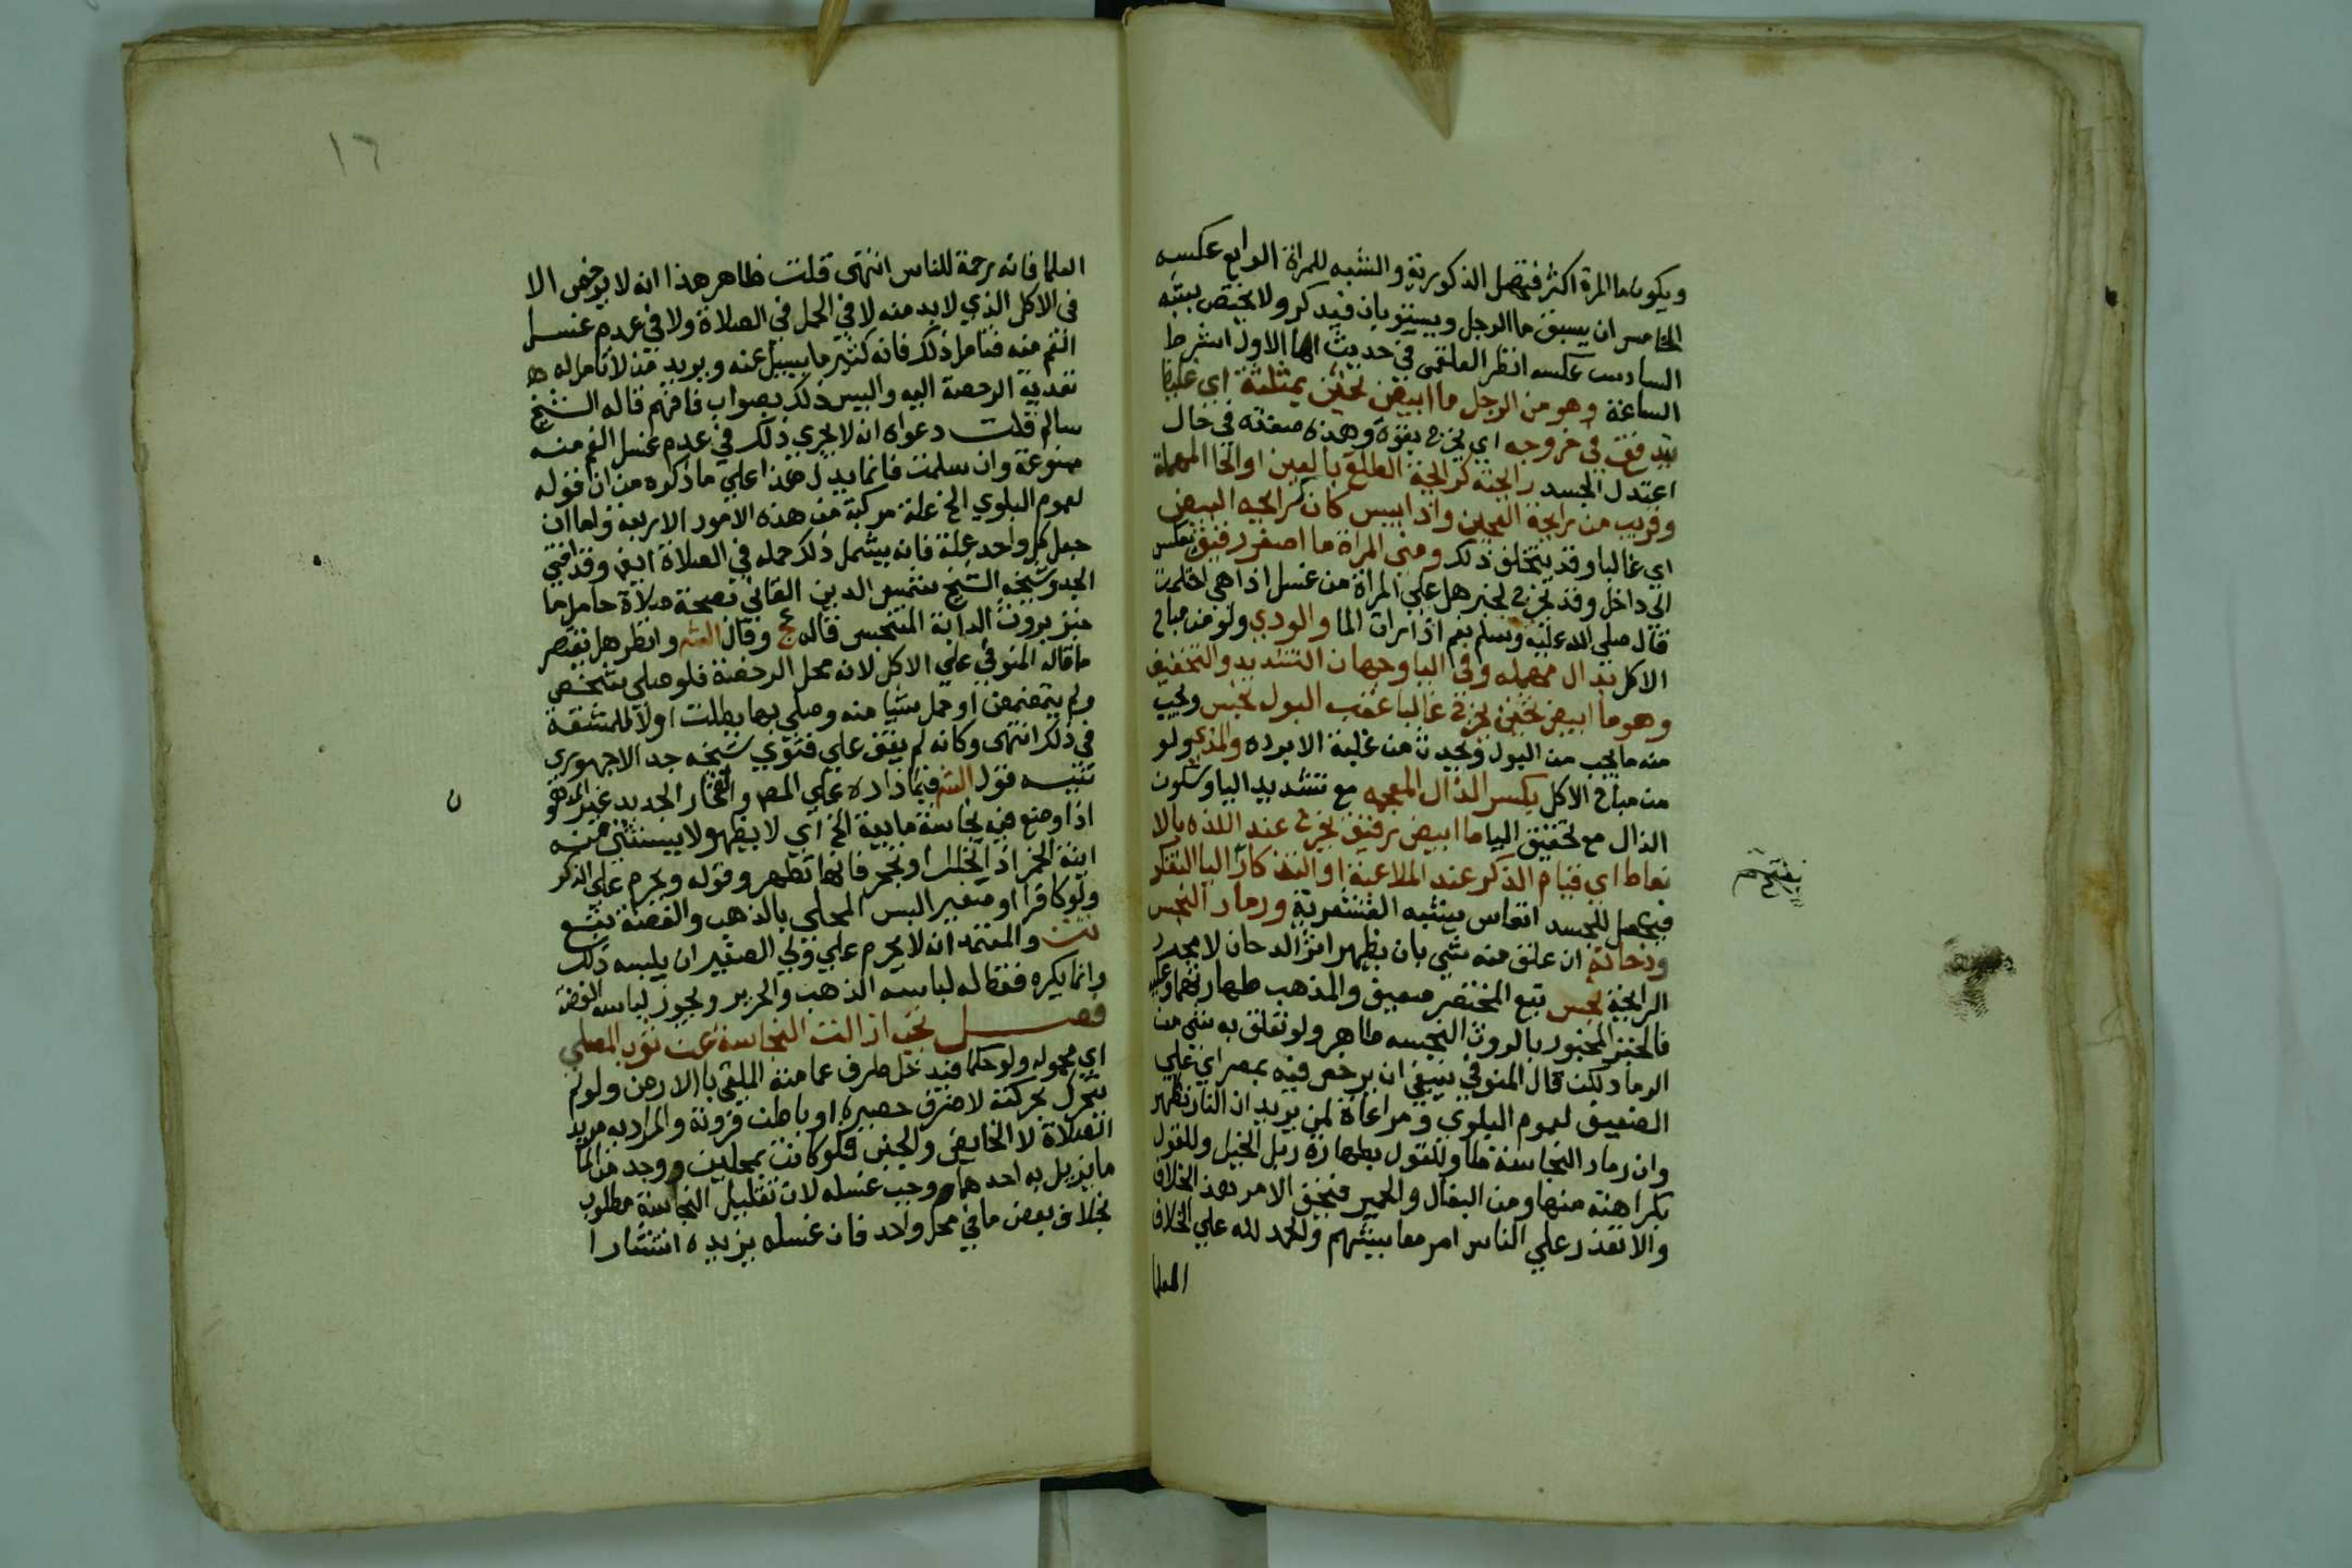 ويكون ما المرة اكثر فتحصل الذكورية والشبه للمراة الرابع عكسه
الخامس ان يسبق ما الرجل ويستويان فيذكر ولا يختص بشبه
السادس عكسه انظر العلقمي في حديث اما الاول اشرط
الساعة وهو من الرجل ما ابيض ثخين بمثلثة اي غليظ
يتدفق في خروجه اي يخرج بقوة وهذه صفته في حال
اعتدل الجسد رايحته كرايحة الطلع بالعين او الحا المهملة
وقريب من رايحة العجين واذا يبس كان كرايحه البيض
اي غالبا وقد يتخلف ذلك ومني المراة ما اصفر رقيق تعكس
الي داخل وقد يخرج لخبر هل علي المراة من غسل اذا هي احتلمت
قال صلي الله عليه وسلم نعم اذا رات الما والودي ولو من مباح
الاكل بدال مهمله وفي اليا وجهان التشديد والتخفيف
وهو ما ابيض ثخين يخرج غالبا عقب البول نجس ويجب
منه ما يجب من البول ويحدث من غلبة الابرده والمذي ولو
من مباح الاكل بكسر الذال المعجمه مع تشديد اليا وسكون
الذال مع تخفيف اليا ما ابيض رقيق يخرج عند اللذه بالا
نعاط اي قيام الذكر عند الملاعبة او التذكار اليا التفكر
فيحصل للجسد انعاس يشبه القشعرية ورماد النجس
ودخانه ان علق منه شي بان يظهر اثر الدخان لا مجرد
الرايحة نجس تبع المختصر ضعيف والمذهب طهارتهما وعليه
فالخبز المخبوز بالروث النجسه طاهر ولو تعلق به شي من
الرماد لكن قال المنوفي ينبغي ان يرخص فيه بمصر اي علي
الضعيف لعموم البلوي ومراعاة لمن يري ان النار تطهر
وان رماد النجاسة طا وللقول بطهارة زبل الخيل وللقول
بكراهته منها ومن البغال والحمير فيخف الامر بهذا الخلاف
والا تعذر علي الناس امر معايشهم والحمد لله علي الخلاف
العلما
بفتح م
١٦
العلما فانه رحمة للناس انتهى قلت ظاهر هذا انه لا يرخص الا
في الاكل الذي لا بد منه لا في الحمل في الصلاة ولا في عدم غسل
الفم منه فتامل ذلك فانه كثير ما يسيل عنه ويريد من لا تامل له
تعدية الرخصة اليه واليس ذلك بصواب فافهم قاله الشيخ
سالم قلت دعواه انه لا يجري ذلك في عدم غسل الفم منه
ممنوعة وان سلمت فانما يدل هذا علي ما ذكره من ان قوله
لعموم البلوي الخ علة مركبة من هذه الامور الاربعة واما ان
جعل كل واحد علة فانه يشمل ذلك حمله في الصلاة ايض وقد افتي
الجد وشيخه الشيخ شمس الدين اللقاني بصحة صلاة حامل ما
خبز بروث الدابة المتنجس قاله عج وقال الشه وانظر هل يقتصر
ما قاله المنوفي علي الاكل لانه محل الرخصة فلو صلي شخص
ولم يتمضمض او حمل شيا منه وصلي بها بطلت او لا للمشقة
في ذلك انتهى وكانه لم يقف علي فتوي شيخه جد الاجهوري
تنبيه قول الشه فيما زاده علي المص والفخار الجديد غير المدهو
ن
اذا وضع فيه نجاسة مايعة الخ اي لا يطهر ولا يستثني منه
انية الخمر اذا تخلل او تحجر فانها تطهر وقوله ويحرم علي الذكر
ولو كافرا او صغير البس المحلي بالذهب والفضة تبع
تت والمعتمد انه لا يحرم علي ولي الصغير ان يلبسه ذلك
وانما يكره فقط له لباسه الذهب والحرير ويجوز لباسه الفضة
فصل تجب ازالت النجاسة عن ثوب المصلي
اي محموله ولو حكما فيدخل طرف عمامته الملقي بالارض ولو لم
تتحرك بحركته لا طرف حصيره او باطن فروته والمراد به مريد
الصلاة لا الحايض والجنب فلو كانت بمحلين ووجد من الما
ما يزيل به احدهما وجب غسله لان تقليل النجاسة مطلوب
بخلاف بعض ما في محل واحد فان غسله يزيده انتشارا